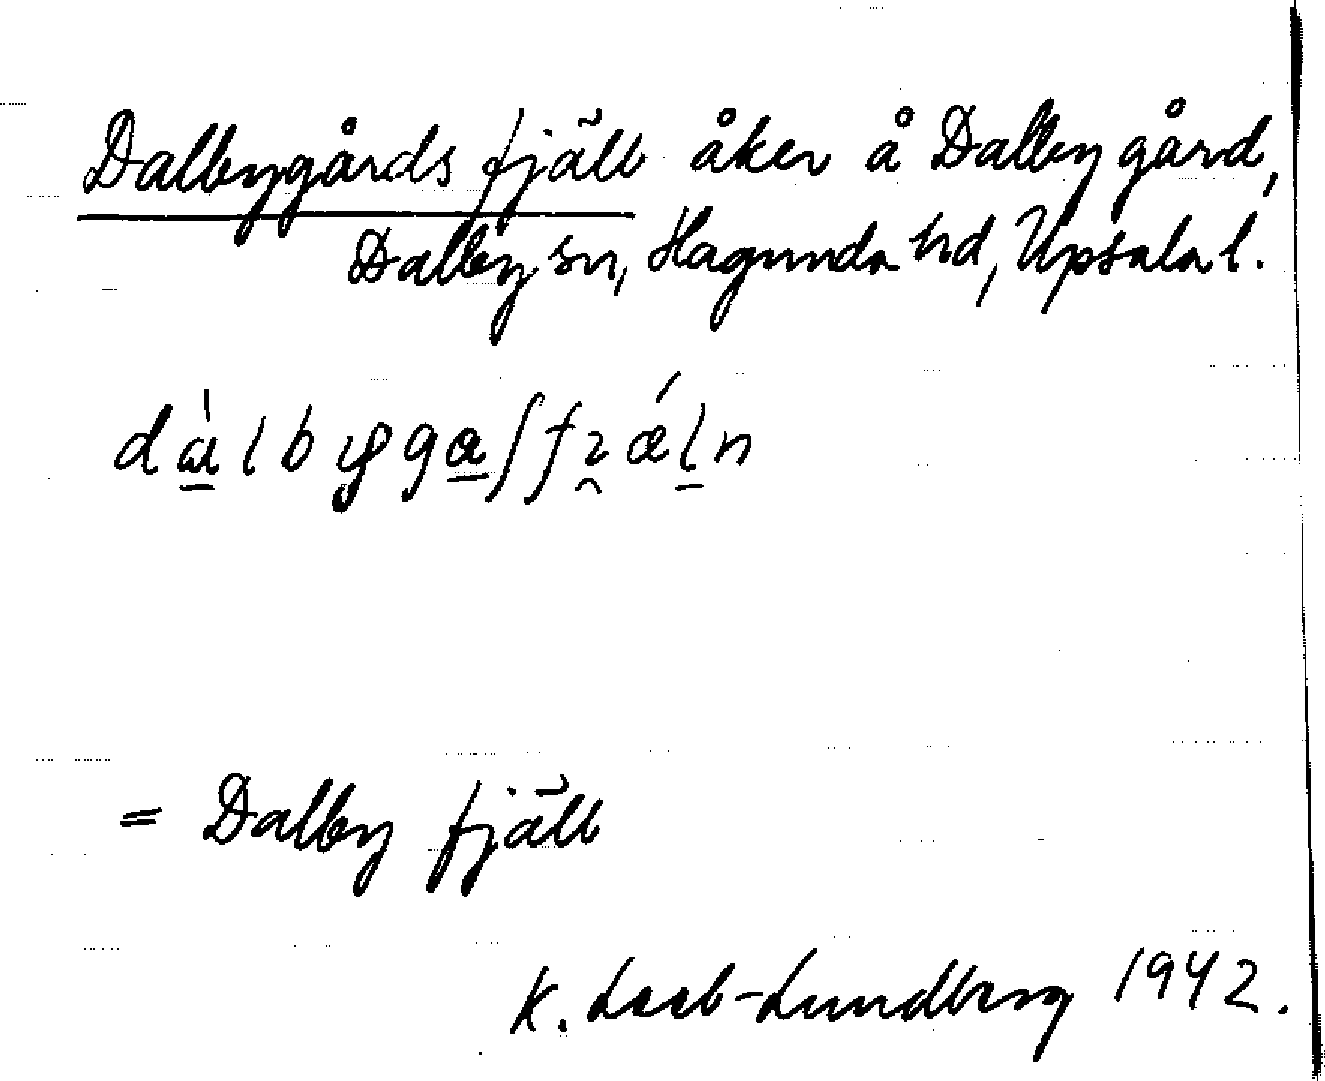 Dalbygårds fjäll åker å Dalby gård,
Dalby sn, Hagunda hd, Upsala l.
= Dalby fjäll
K. Leeb-Lundberg 1942.